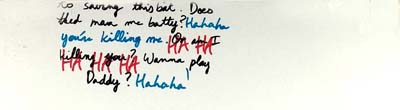 to saving this bat. Does
that make me batty? Hahaha
you're killing me. Or am I
HA HA
killing you? Wanna play
HA HA HA
Daddy? Hahaha!